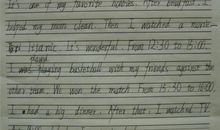 It's one of my favorite hobbies. After breakfast, I
helped my mom clean. Then I watched a movie-
Titanic. It's wonderful. From 12:30 to 15:00,
I was played basketball with my friends against the
other team. We won the match. From 15:30 to
I had a big dinner. After that, I watched TV.